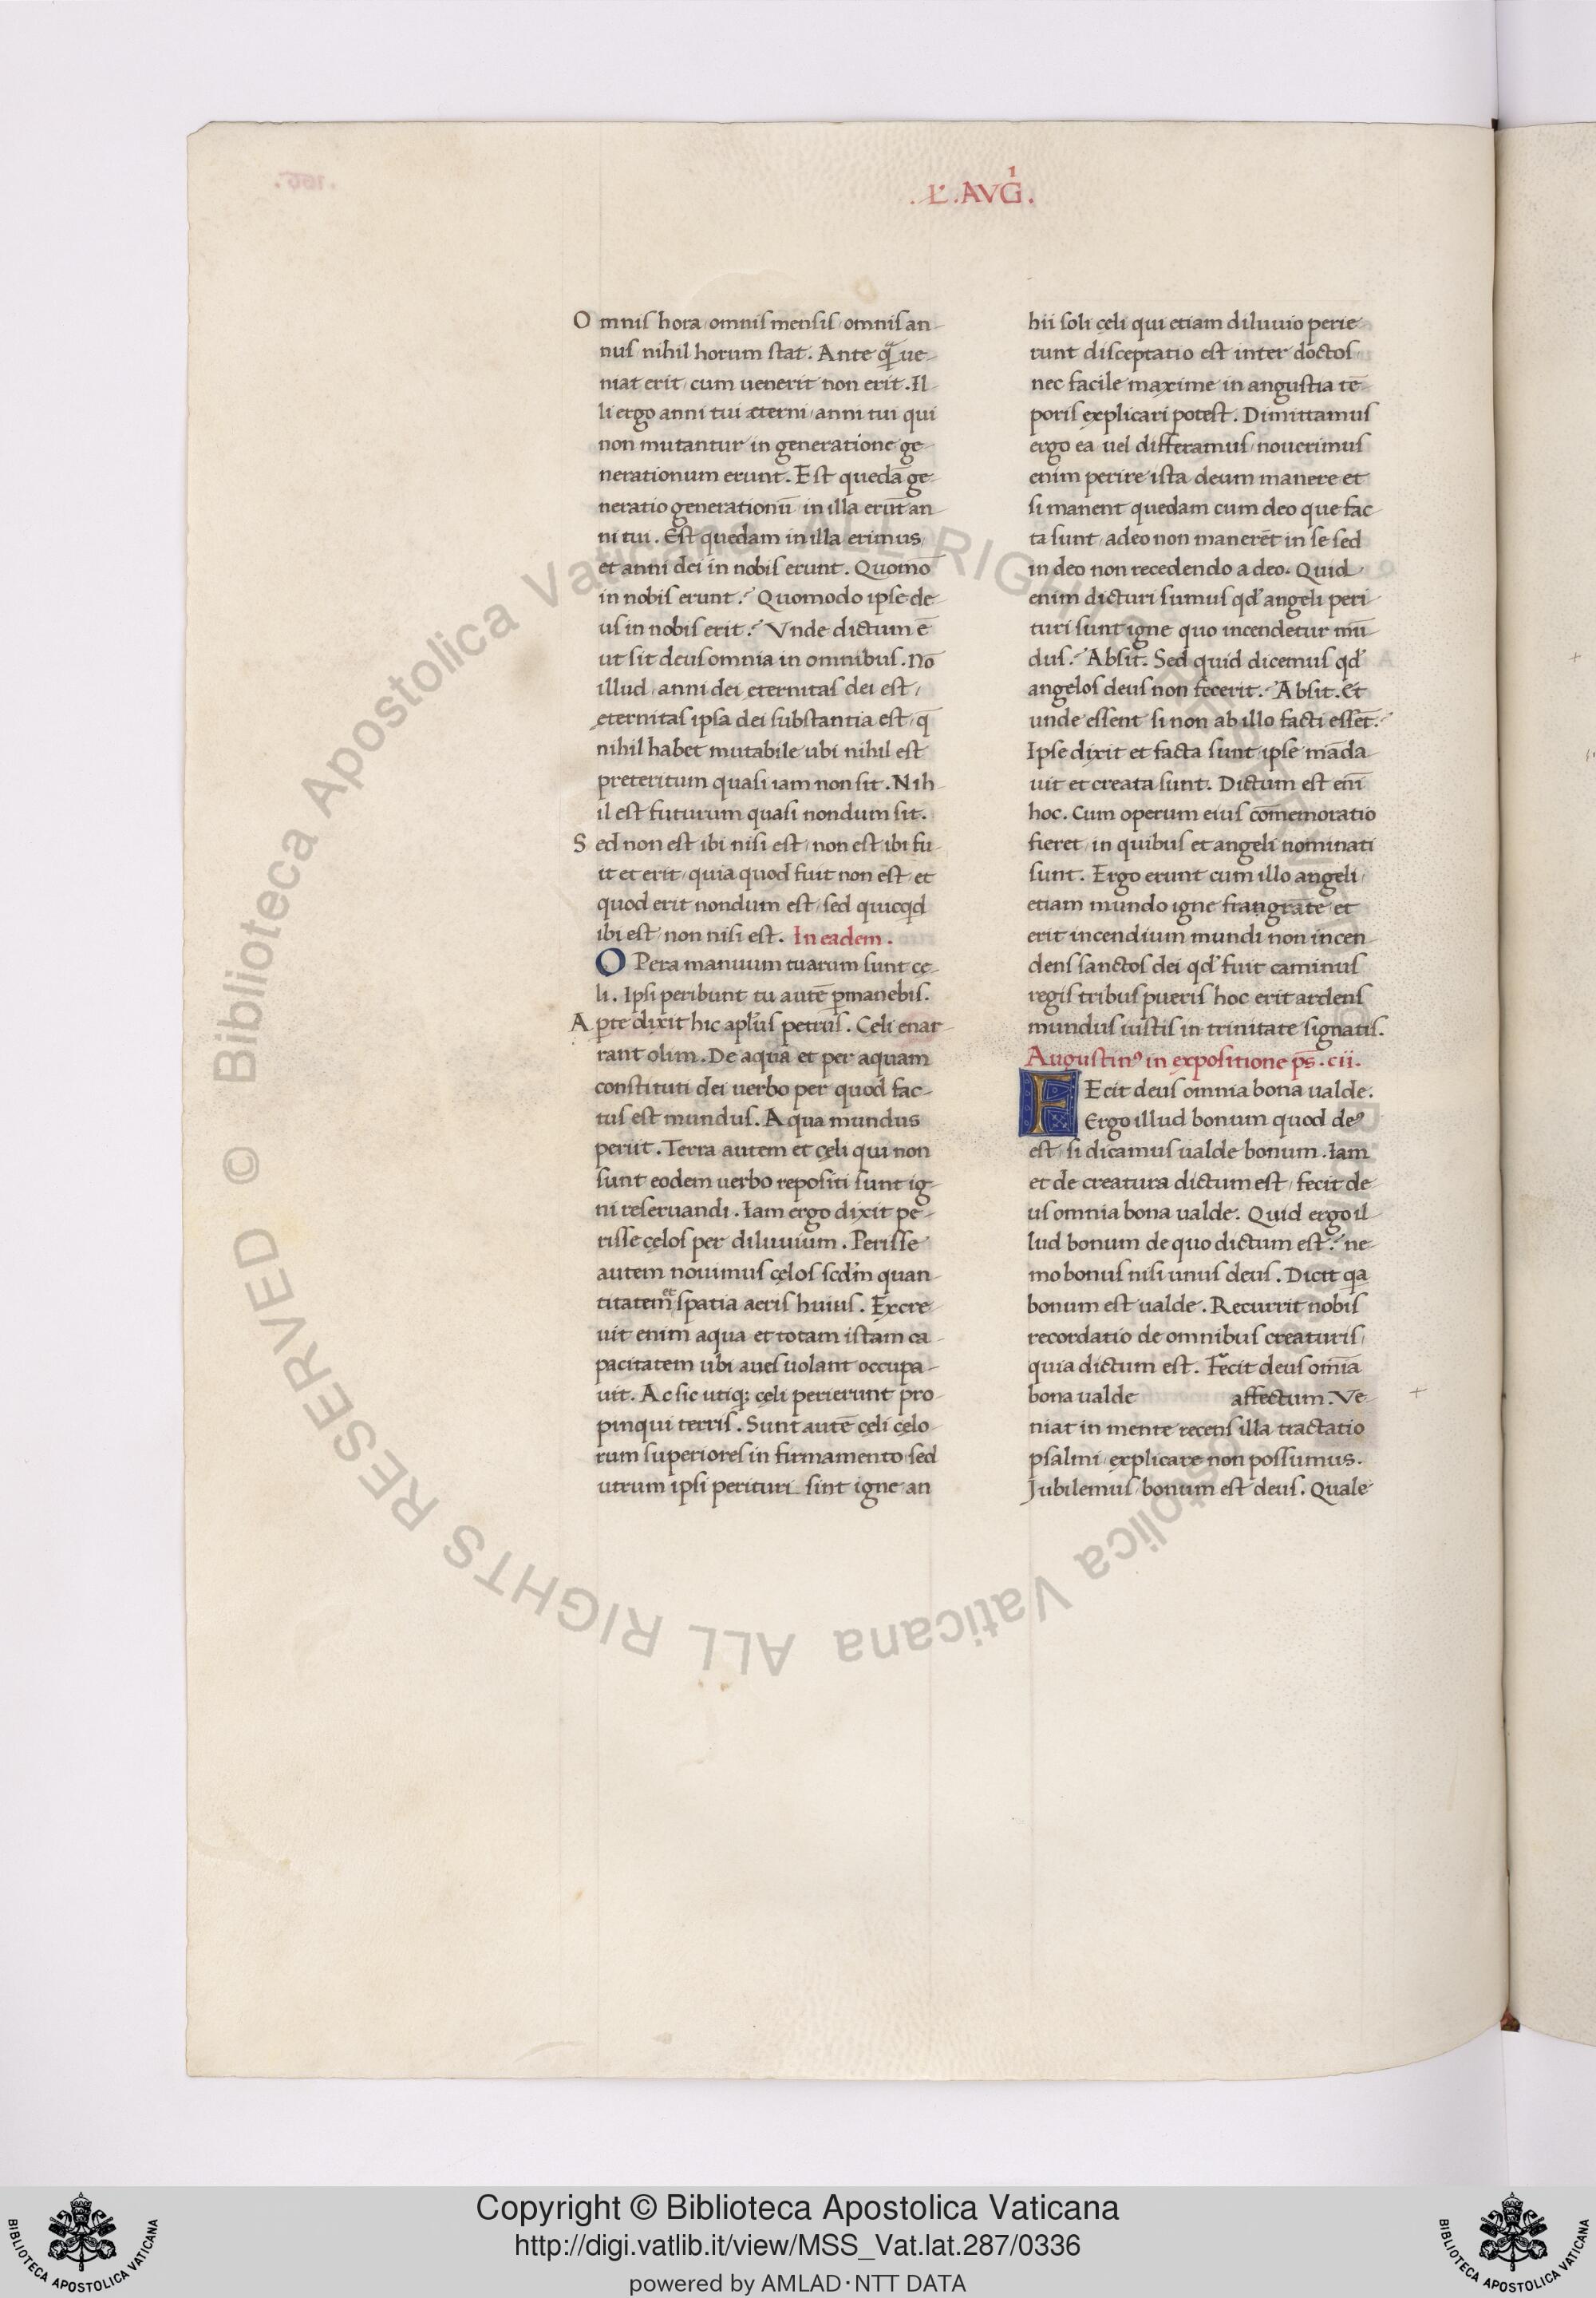 .L'.AVGꝰ.
Omnis hora omnis mensis omnis an-
nus nihil horum stat. Ante q̃ ue-
niat erit cum uenerit non erit. Il
li ergo anni tui æterni anni tui qui
non mutantur in generatione ge-
nerationum erunt. Est quedā ge-
neratio generationū in illa erūt an-
ni tui. Est quedam in illa erimus
et anni dei in nobis erunt. Quomō
in nobis erunt? Quomodo ipse de-
us in nobis erit? Vnde dictum ē
ut sit deus omnia in omnibus. Nō
illud anni dei ęternitas dei est,
ęternitas ipsa dei substantia est, q̄
nihil habet mutabile ubi nihil est
preteritum quasi iam non sit. Nih
il est futurum quasi nondum sit.
Sed non est ibi nisi est, non est ibi fu-
it et erit, quia quod fuit non est, et
quod erit nondum est, sed quicqd
ibi est non nisi est. In eadem.
OPera manuum tuarum sunt cę-
li. Ipsi peribunt tu autē ꝑmanebis.
Apte dixit hic apl'us petrus. Celi enar-
rant olim. De aqua et per aquam
constituti dei uerbo per quod fac-
tus est mundus. Aqua mundus
periit. Terra autem et cęli qui non
sunt eodem uerbo repositi sunt ig-
ni reseruandi. Iam ergo dixit pe-
risse cęlos per diluuium. Perisse
autem nouimus cęlos scd'm quan-
titatem et spatia aeris huius. Excre-
uit enim aqua et totam istam ca-
pacitatem ubi aues uolant occupa-
uit. Ac sic utiq; cęli perierunt pro-
pinqui terris. Sunt autē cęli cęlo
rum superiores in firmamento sed
utrum ipsi perituri sint igne an
hii soli cęli qui etiam diluuio perie-
runt disceptatio est inter doctos
nec facile maxime in angustia tē-
poris explicari potest. Dimittamus
ergo ea uel differamus, nouerimus
enim perire ista deum manere et
si manent quedam cum deo que fac
ta sunt adeo non manerēt in se sed
in deo non recedendo a deo. Quid
enim dicturi sumus qd' angeli peri-
turi sunt igne quo incendetur mū-
dus? Absit. Sed quid dicemus qd'
angelos deus non fecerit? Absit. Et
unde essent si non ab illo facti essēt?
Ipse dixit et facta sunt ipse māda-
uit et creata sunt. Dictum est enī
hoc. Cum operum eius cōmemoratio
fieret in quibus et angeli nominati
sunt. Ergo erunt cum illo angeli
etiam mundo igne frangrāte et
erit incendium mundi non incen-
dens sanctos dei qd' fuit caminus
regis tribus pueris hoc erit ardens
mundus iustis in trinitate signatis.
Augustinꝰ in expositione ps̄. cii.
FEcit deus omnia bona ualde.
Ergo illud bonum quod deꝰ
est, si dicamus ualde bonum. Iam
et de creatura dictum est, fecit de-
us omnia bona ualde. Quid ergo il-
lud bonum de quo dictum est? ne-
mo bonus nisi unus deus. Dicit qa
bonum est ualde. Recurrit nobis
recordatio de omnibus creaturis,
quia dictum est. Fecit deus omīa
bona ualde affectum. Ve-
niat in mente recens illa tractatio
psalmi, explicare non possumus.
Jubilemus, bonum est deus. Quale
Copyright © Biblioteca Apostolica Vaticana
http://digi.vatlib.it/view/MSS_Vat.lat.287/0336
powered by AMLAD·NTT DATA
BIBLIOTECA APOSTOLICA VATICANA
BIBLIOTECA APOSTOLICA VATICANA
© Biblioteca Apostolica Vaticana ALL RIGHTS RESERVED
© Biblioteca Apostolica Vaticana ALL RIGHTS RESERVED